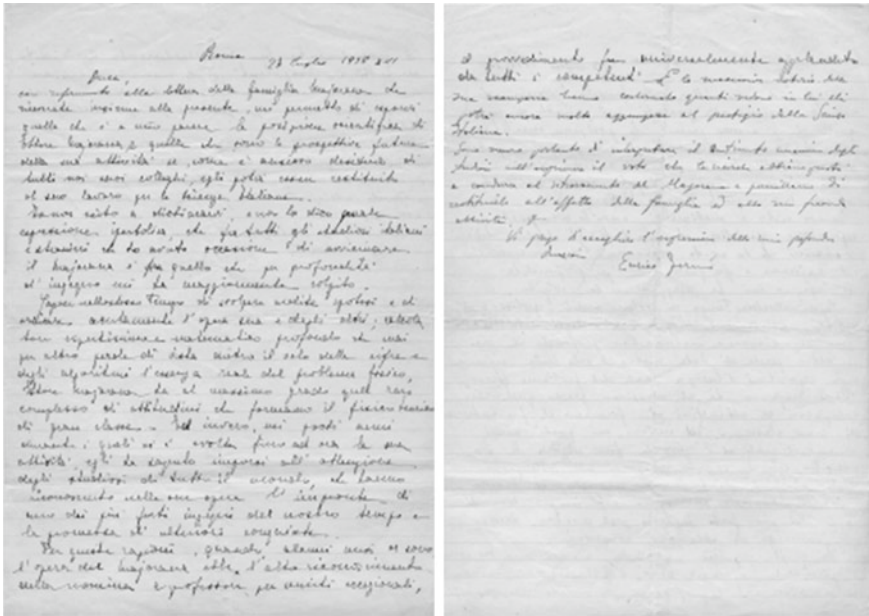 Roma 27 luglio 1938 XVI
Duce,
con riferimento alla lettera della famiglia Majorana che
riceverete insieme alla presente, mi permetto di esporvi
quella che è a mio parere la posizione scientifica di
Ettore Majorana, e quelle che sono le prospettive future
della sua attività se, come è ansioso desiderio di
tutti noi suoi colleghi, egli potrà essere restituito
al suo lavoro per la scienza Italiana.
Io non esito a dichiararvi, e non lo dico quale
espressione iperbolica, che fra tutti gli studiosi italiani
e stranieri che ho avuto occasione di avvicinare
il Majorana è fra quelli che per profondità
d'ingegno mi ha maggiormente colpito.
Capace nello stesso tempo di svolgere ardite ipotesi e di
criticare acutamente l'opera sua e degli altri; calcola
tore espertissimo e matematico profondo che mai
per altro perde di vista dietro il velo delle cifre e
degli algoritmi l'essenza reale del problema fisico,
Ettore Majorana ha al massimo grado quel raro
complesso di attitudini che formano il fisico teorico
di gran classe. Ed invero, nei pochi anni
durante i quali si è svolta fino ad ora la sua
attività, egli ha saputo imporsi all'attenzione
degli studiosi di tutto il mondo, che hanno
riconosciuto nelle sue opere l'impronta di
uno dei più forti ingegni del nostro tempo e
la promessa di ulteriori conquiste.
Per queste ragioni, quando, alcuni mesi or sono
l'opera del Majorana ebbe l'alto riconoscimento
della nomina a professore, per meriti eccezionali,
il provvedimento fu universalmente applaudito
da tutti i competenti. E le notizie della
sua scomparsa hanno costernato quanti vedono in lui chi
potrà ancora molto aggiungere al prestigio della Scienza
Italiana.
Sono sicuro pertanto di interpretare il sentimento unanime degli
studiosi nell'esprimere il voto che le ricerche
a condurre al ritrovamento del Majorana e
restituirlo all'affetto della famiglia ed alla sua feconda
attività.
Vi prego di accogliere l'espressione della mia profonda
devozione
Enrico Fermi